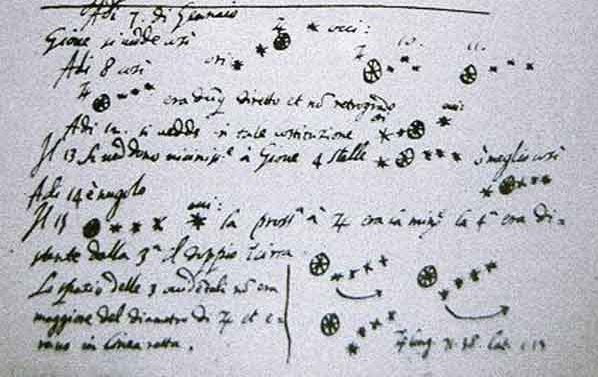 Adi 7. di Gennaio
Gioue si uedde così ori: occi:
Adi 8 così 10. 11.
era dūq diretto et nō retrogrado
Adi 12. si uedde in tale costituzione ori occi:
Il 13 si ueddono uicinissᵉ à Gioue 4 stelle ò meglio così
Adi 14 è nugolo
Il 15 occi: la prossᵃ à ♃ era la minᵉ la 4ᵃ era di=
stante dalla 3ᵃ il doppio circa
Lo spatio delle 3 occidentali nō era
maggiore del diametro di ♃ et e=
rano in linea retta.